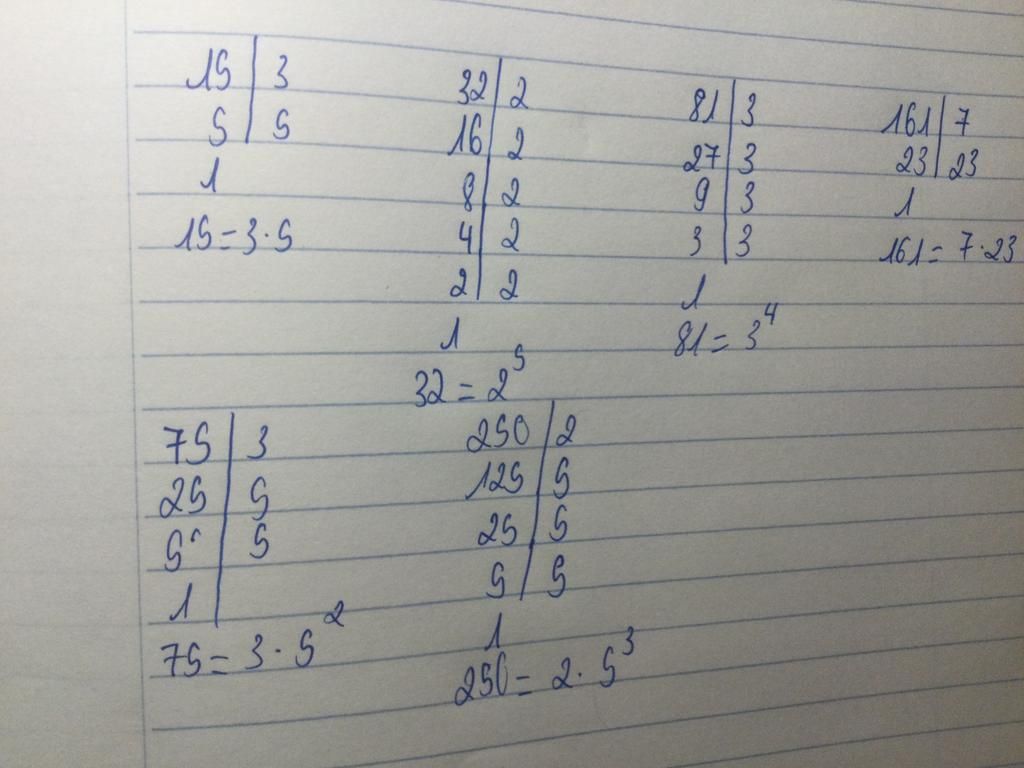 15 | 3
5 | 5
1
15 = 3 · 5
32 | 2
16 | 2
8 | 2
4 | 2
2 | 2
1
32 = 2⁵
81 | 3
27 | 3
9 | 3
3 | 3
1
81 = 3⁴
161 | 7
23 | 23
1
161 = 7 · 23
75 | 3
25 | 5
5 | 5
1 |
75 = 3 · 5²
250 | 2
125 | 5
25 | 5
5 | 5
1
250 = 2 · 5³